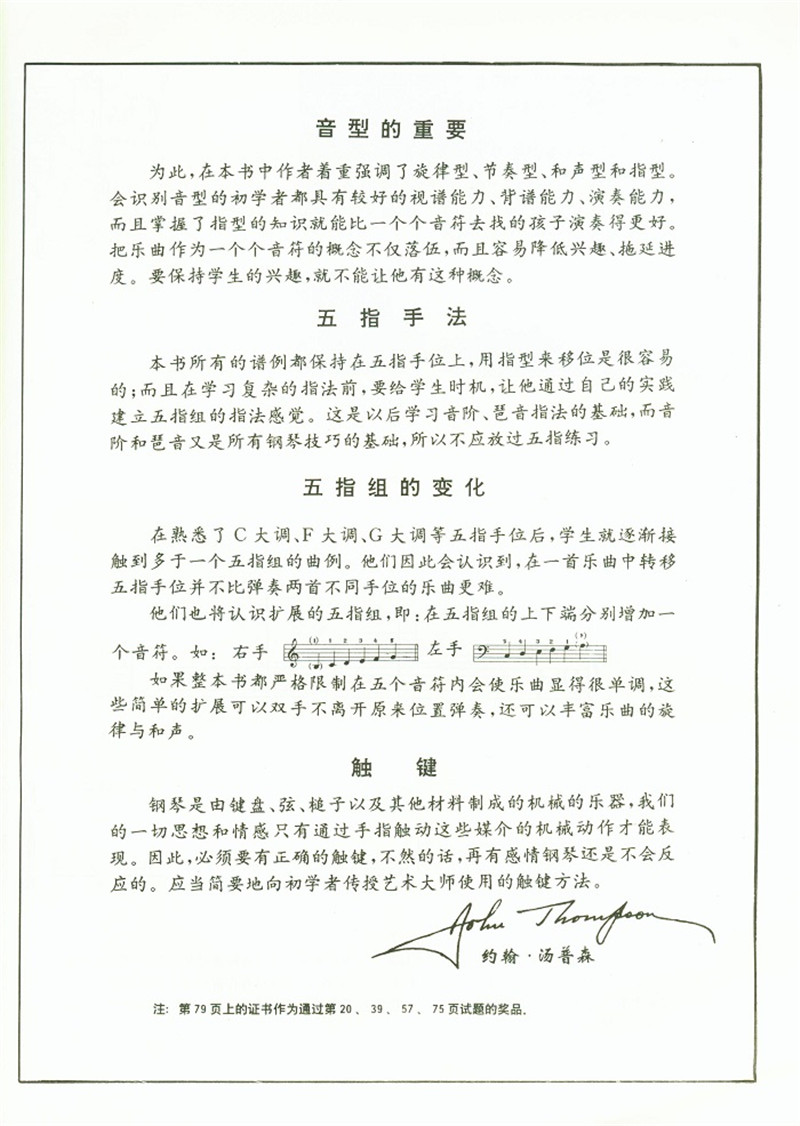 音型的重要
为此,在本书中作者着重强调了旋律型、节奏型、和声型和指型。
会识别音型的初学者都具有较好的视谱能力、背谱能力、演奏能力,
而且掌握了指型的知识就能比一个个音符去找的孩子演奏得更好。
把乐曲作为一个个音符的概念不仅落伍,而且容易降低兴趣、拖延进
度。要保持学生的兴趣,就不能让他有这种概念。
五指手法
本书所有的谱例都保持在五指手位上,用指型来移位是很容易
的;而且在学习复杂的指法前,要给学生时机,让他通过自己的实践
建立五指组的指法感觉。这是以后学习音阶、琶音指法的基础,而音
阶和琶音又是所有钢琴技巧的基础,所以不应放过五指练习。
五指组的变化
在熟悉了C大调、F大调、G大调等五指手位后,学生就逐渐接
触到多于一个五指组的曲例。他们因此会认识到,在一首乐曲中转移
五指手位并不比弹奏两首不同手位的乐曲更难。
他们也将认识扩展的五指组,即:在五指组的上下端分别增加一
个音符。如: 右手 (1) 1 2 3 4 5 左手 5 4 3 2 1
如果整本书都严格限制在五个音符内会使乐曲显得很单调,这
些简单的扩展可以双手不离开原来位置弹奏,还可以丰富乐曲的旋
律与和声。
触键
钢琴是由键盘、弦、槌子以及其他材料制成的机械的乐器,我们
的一切思想和情感只有通过手指触动这些媒介的机械动作才能表
现。因此,必须要有正确的触键,不然的话,再有感情钢琴还是不会反
应的。应当简要地向初学者传授艺术大师使用的触键方法。
John Thompson
约翰·汤普森
注: 第79页上的证书作为通过第20、39、57、75页试题的奖品.